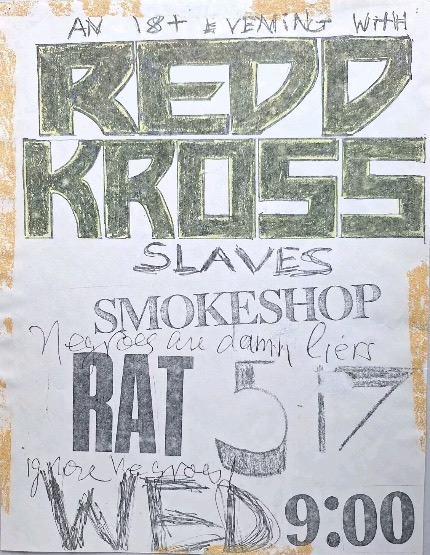 AN 18+ EVENING WITH
REDD
KROSS
SLAVES
SMOKESHOP
Negroes are damn liers
RAT 5-17
ignore negroes
WED 9:00